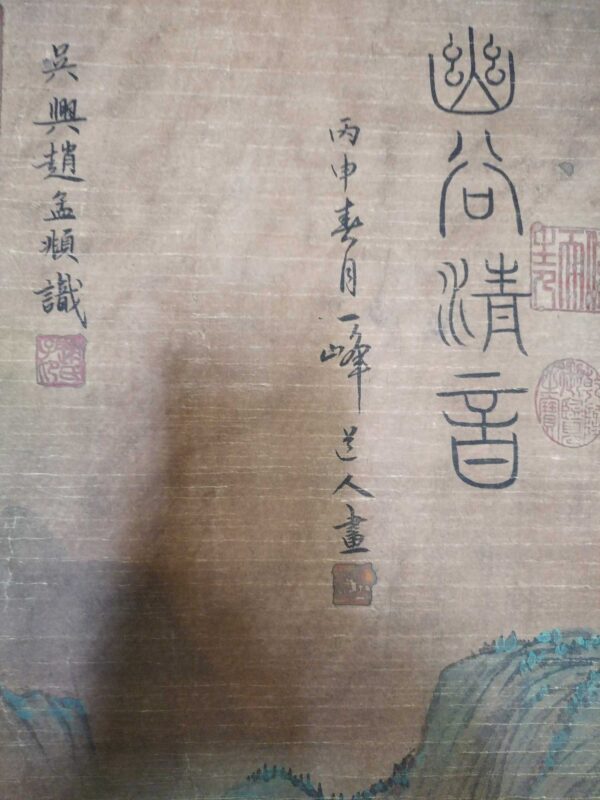 幽谷清音
丙申春月一峰道人畫
吳興趙孟頫識